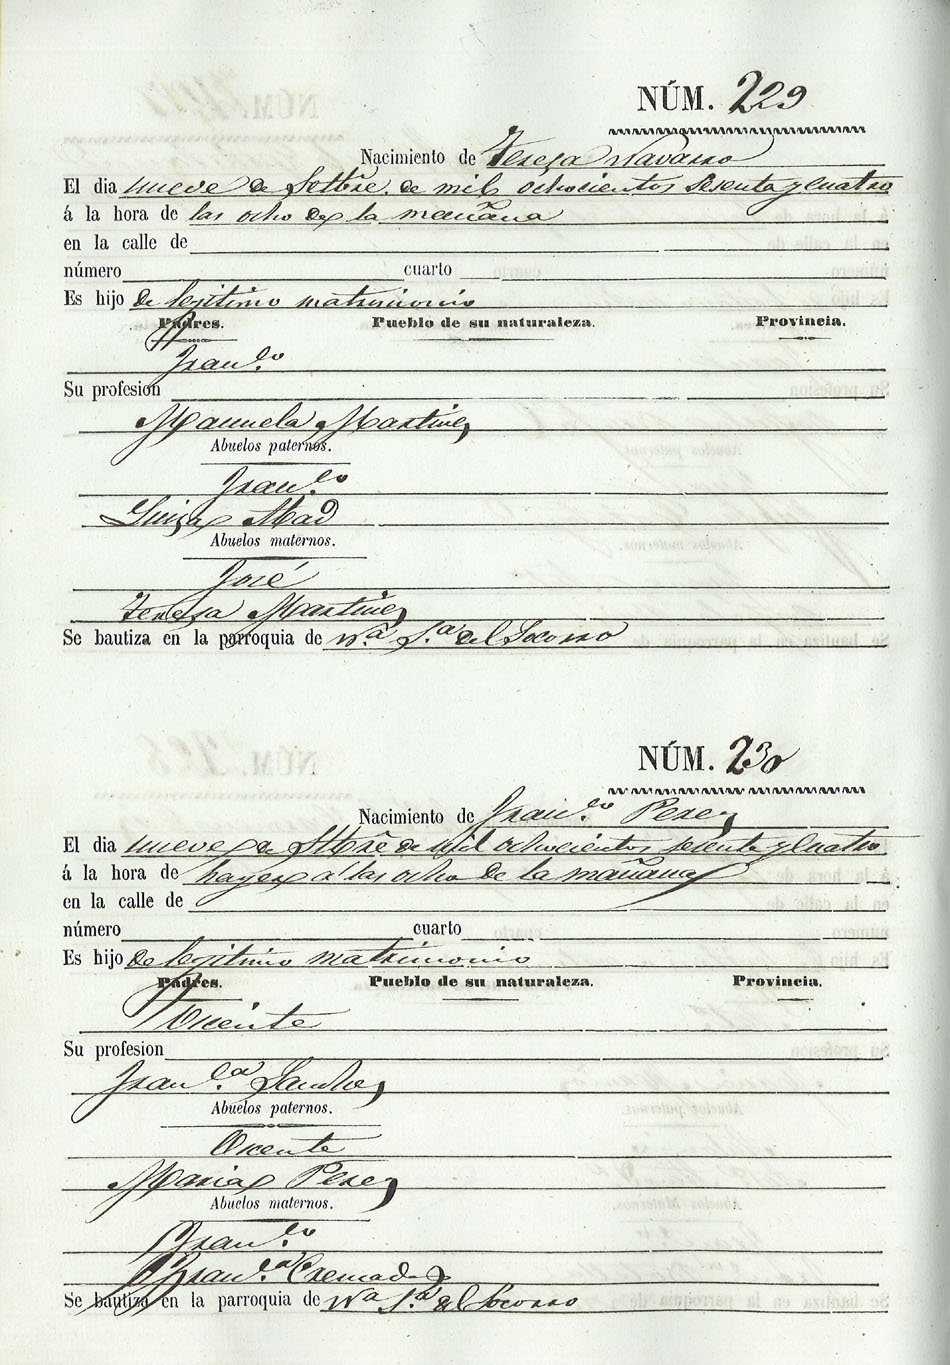 NÚM. 229
Nacimiento de Teresa Navarro
El dia nueve de Setbre. de mil ochocientos sesenta y cuatro
á la hora de las ocho de la mañana
en la calle de
número cuarto
Es hijo de legitimo matrimonio
Padres. Pueblo de su naturaleza. Provincia.
Franco.
Su profesion
Manuela Martinez
Abuelos paternos.
Franco.
Luisa Abad
Abuelos maternos.
José
Teresa Martinez
Se bautiza en la parroquia de Na. Sa. del Socorro
NÚM. 230
Nacimiento de Franco. Perez
El dia nueve de Stbre de mil ochocientos sesenta y cuatro
á la hora de hayer a las ocho de la mañana
en la calle de
número cuarto
Es hijo de legitimo matrimonio
Padres. Pueblo de su naturaleza. Provincia.
Vicente
Su profesion
Franca. Sanchez
Abuelos paternos.
Vicente
Maria Perez
Abuelos maternos.
Franco.
Franca. Cremades
Se bautiza en la parroquia de Na Sa. del Socorro